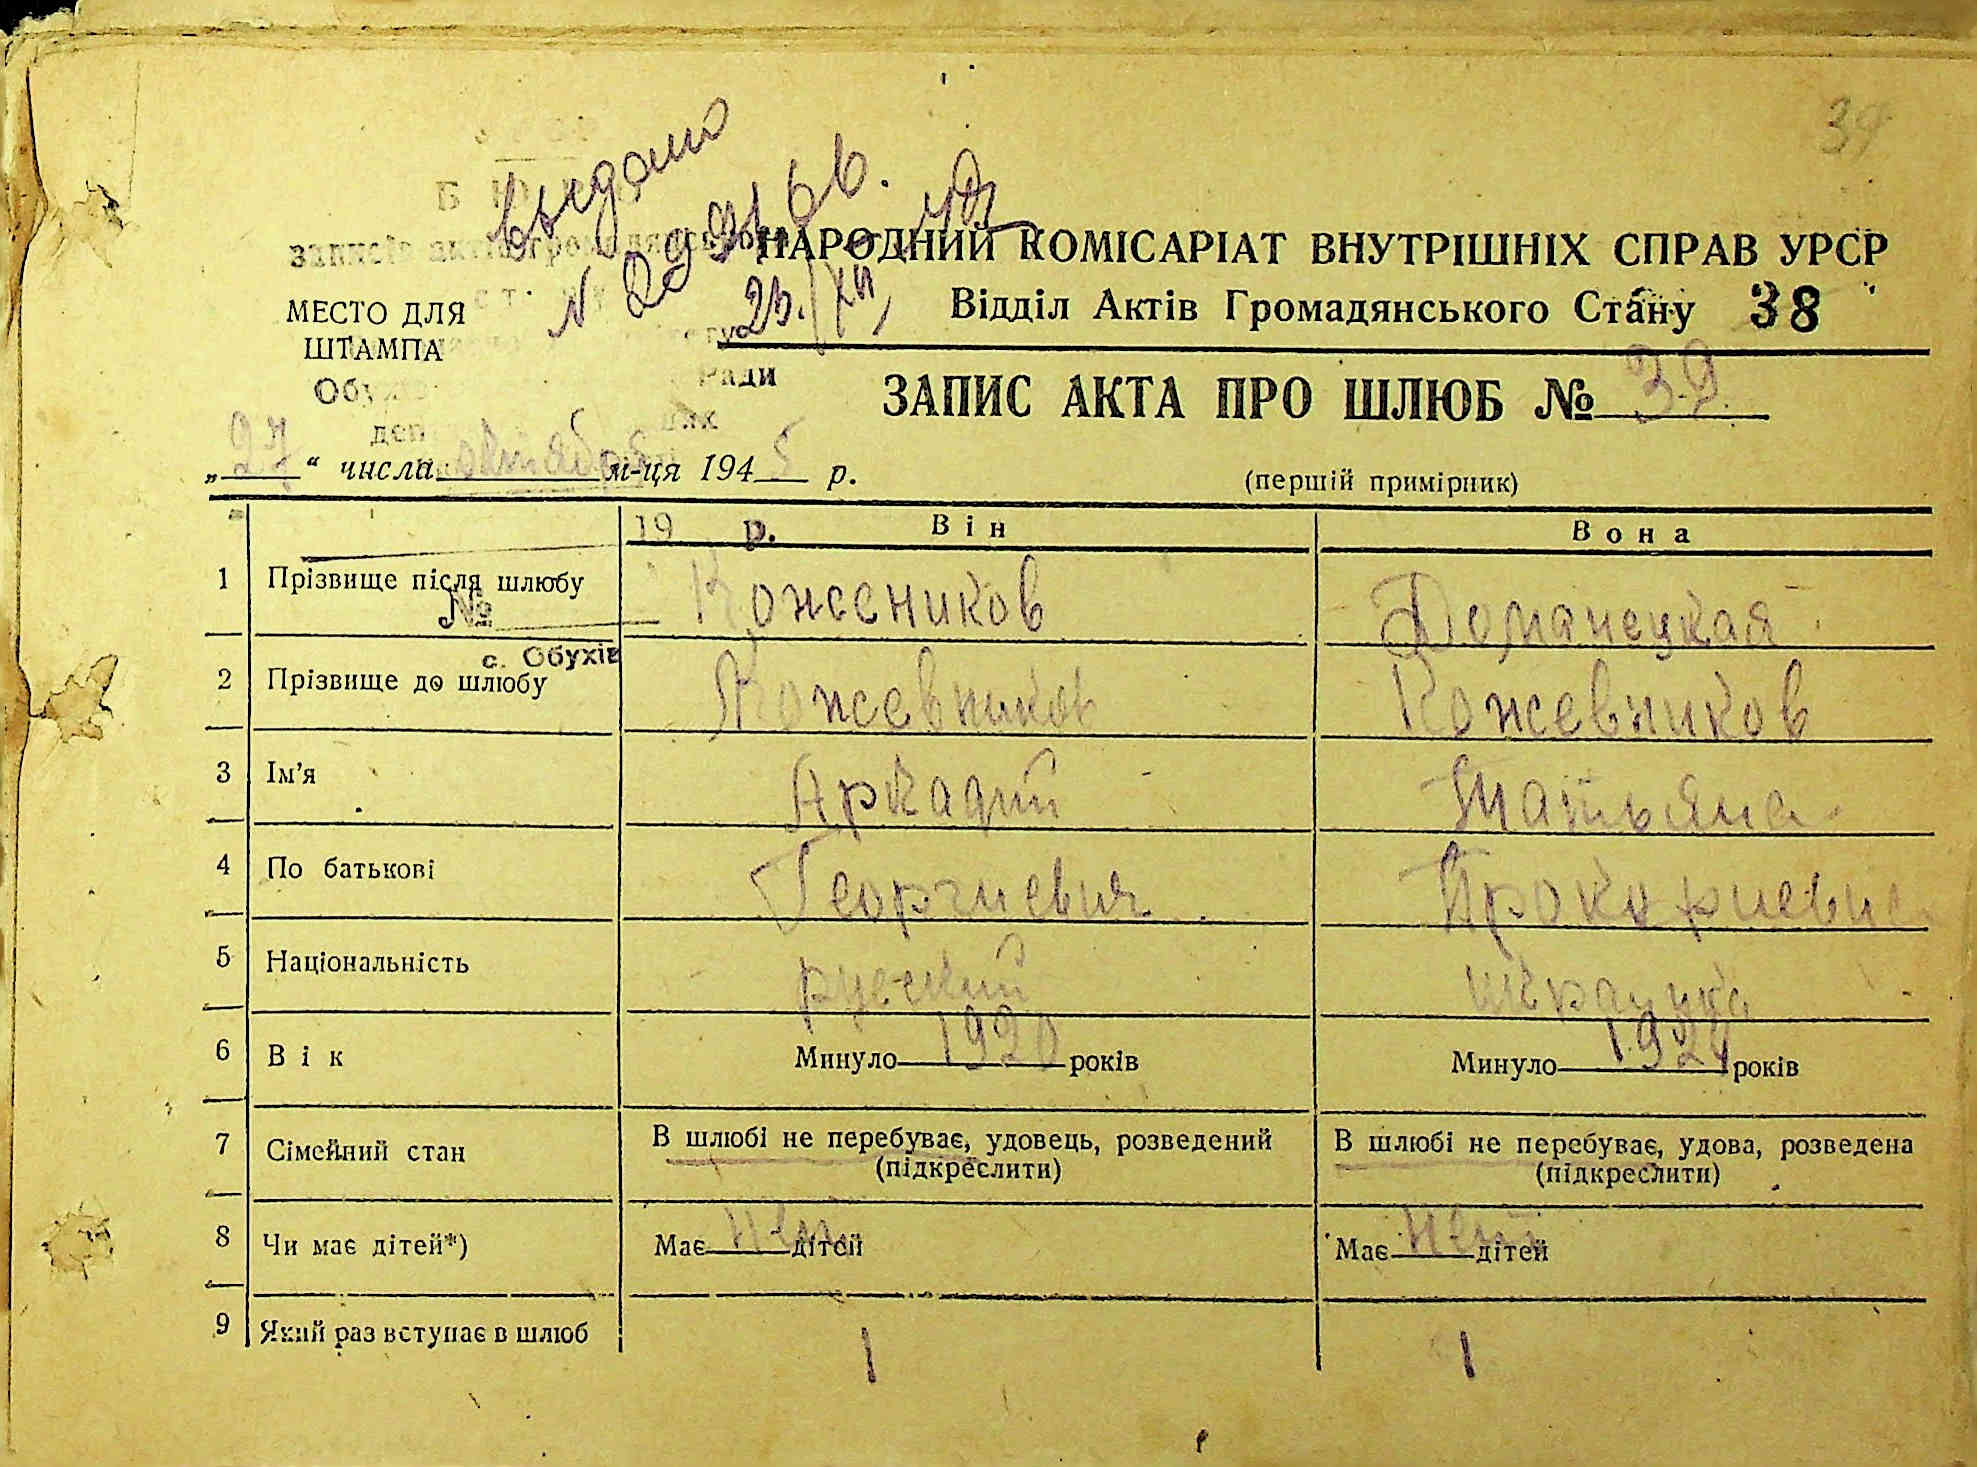 39
выдано
БЮ
записів актів громадянського
№
23./XII
НАРОДНИЙ КОМІСАРІАТ ВНУТРІШНІХ СПРАВ УРСР
Відділ Актів Громадянського Стану 38
МЕСТО ДЛЯ
ШТАМПА
Ради
ЗАПИС АКТА ПРО ШЛЮБ № 39.
„27“ числа октября м-ця 1945 р.
(першій примірник)
19 р. Він Вона
1 Прізвище після шлюбу Кожеников Доманецкая
№
с. Обухів
2 Прізвище до шлюбу Кожевников Кожевников
3 Ім'я Аркадий Татьяна
4 По батькові Георгиевич
5 Національність русский украинка
6 Вік Минуло 1920 років Минуло 1924 років
7 Сімейний стан В шлюбі не перебуває, удовець, розведений В шлюбі не перебуває, удова, розведена
(підкреслити) (підкреслити)
8 Чи має дітей*) Має нет дітей Має нет дітей
9 Який раз вступає в шлюб 1 1